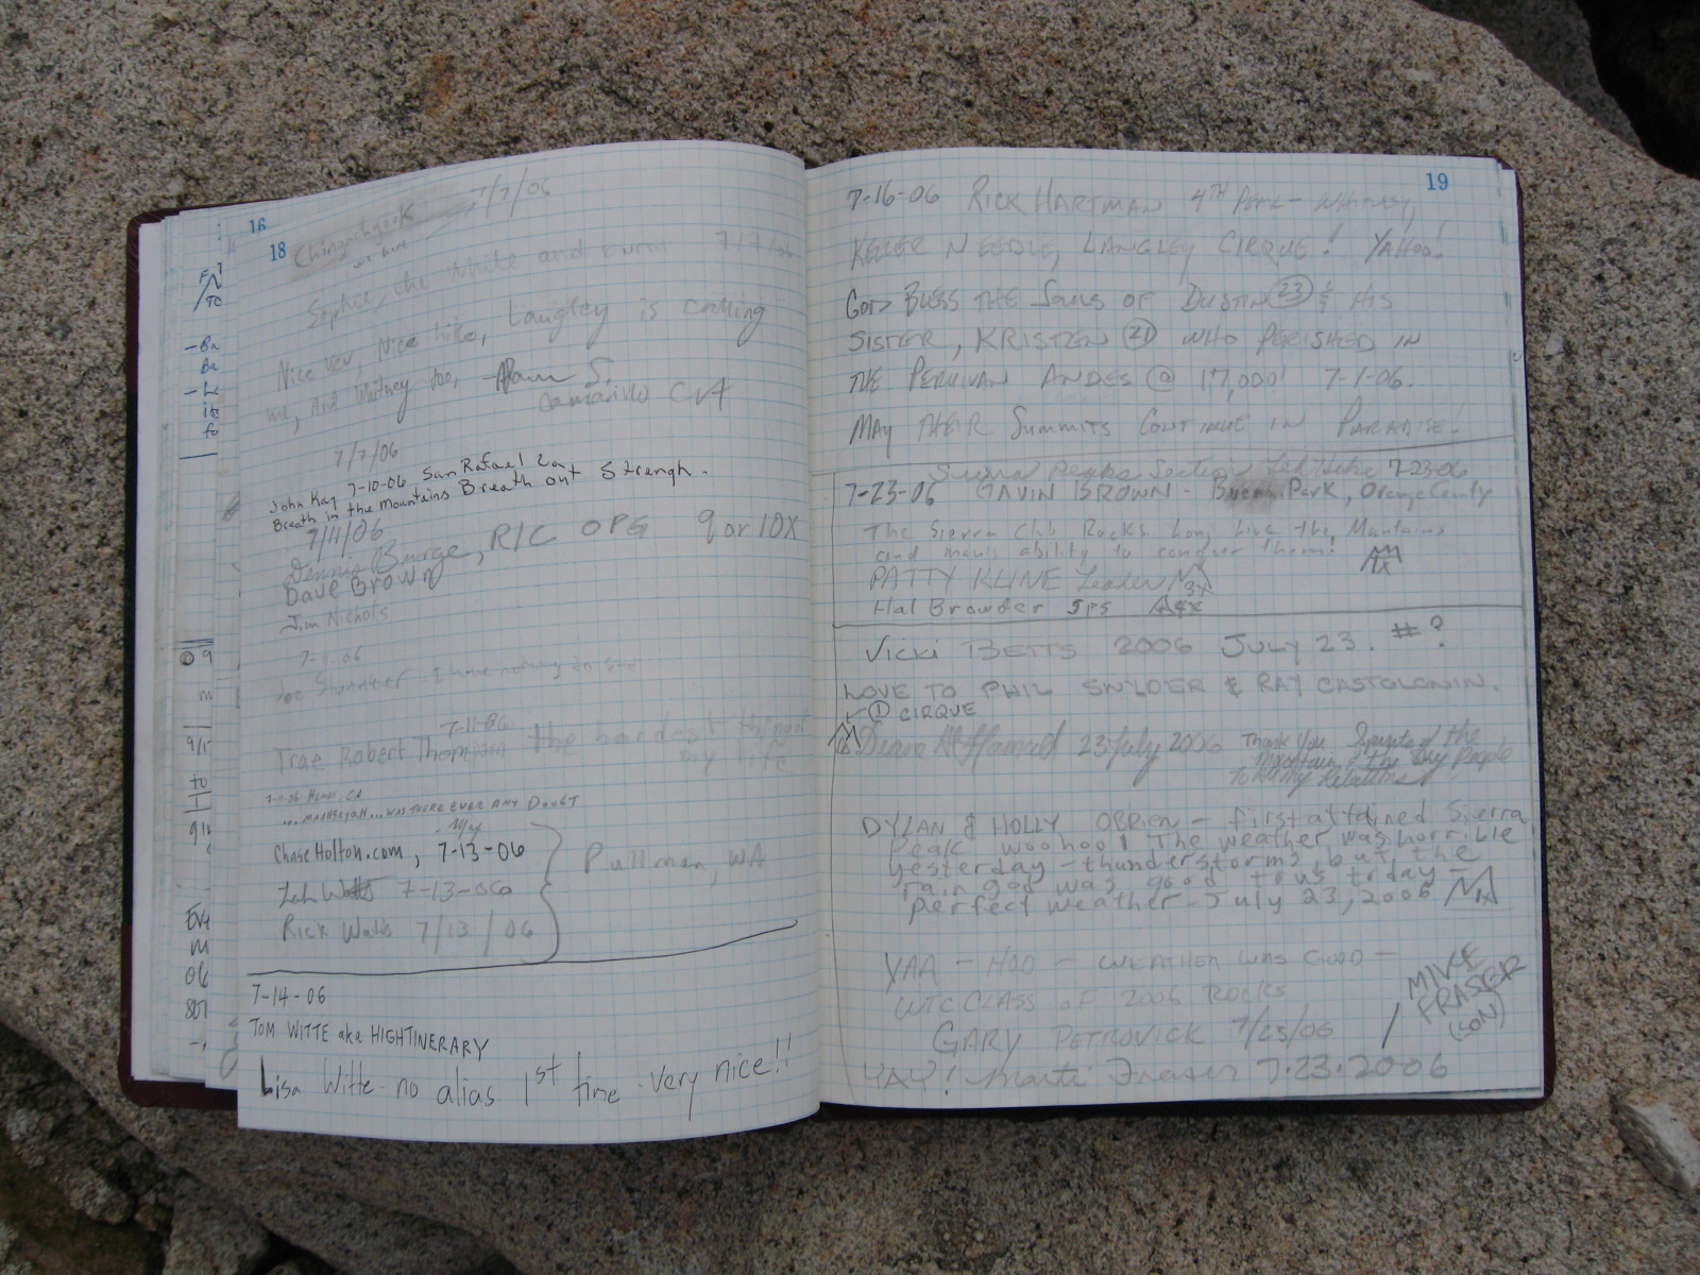 16
18 Chingachgook 7/7/06
Sophie, the white and 7/7/06
Nice day, Nice hike, Langley is calling
me, and Whitney too, Adam S.
Camarillo CA
7/7/06
John Kay 7-10-06, San Rafael Ca
Breath in the Mountains Breath out Strengh.
7/11/06
Dennis Burge, R/C OPG 9 or 10X
Dave Brown
Jim Nichols
I have nothing to
7-11-06
Trae Robert Thompson the hardest thing of
my life
... WAS THERE EVER ANY DOUBT
ChaseHolton.com, 7-13-06
Zach Watts 7-13-06
Pullman, WA
Rick Watts 7/13/06
7-14-06
TOM WITTE aka HIGHTINERARY
Lisa Witte - no alias 1st time - very nice!!
19
7-16-06 RICK HARTMAN 4TH PEAK - WHITNEY,
KEELER NEEDLE, LANGLEY CIRQUE! YAHOO!
GOD BLESS THE SOULS OF DUSTIN (23) & HIS
SISTER, KRISTEN (21) WHO PERISHED IN
THE PERUVIAN ANDES @ 17,000' 7-1-06.
MAY THEIR SUMMITS CONTINUE IN PARADISE!
Sierra Peaks Section Led Hike 7-23-06
7-23-06 GAVIN BROWN - Buena Park, Orange County
The Sierra Club Rocks. Long live the Mountains
and man's ability to conquer them!
PATTY KLINE Leader 3x
Hal Browder SPS 4x
Vicki BETTS 2006 JULY 23. #?
LOVE TO PHIL SNYDER & RAY CASTOLONIN.
① CIRQUE
23 July 2006 Thank You Spirits of the
Mountain & the Sky People
To All my Relations
DYLAN & HOLLY OBRIEN - first attained Sierra
Peak woohoo! The weather was horrible
yesterday - thunderstorms, but the
rain god was good to us today -
perfect weather - July 23, 2006
YAA - HOO - WEATHER WAS GOOD -
WTC CLASS OF 2006 ROCKS
GARY PETROVICK 7/23/06
/ MIKE
FRASER
(SON)
YAY! Marti Fraser 7.23.2006